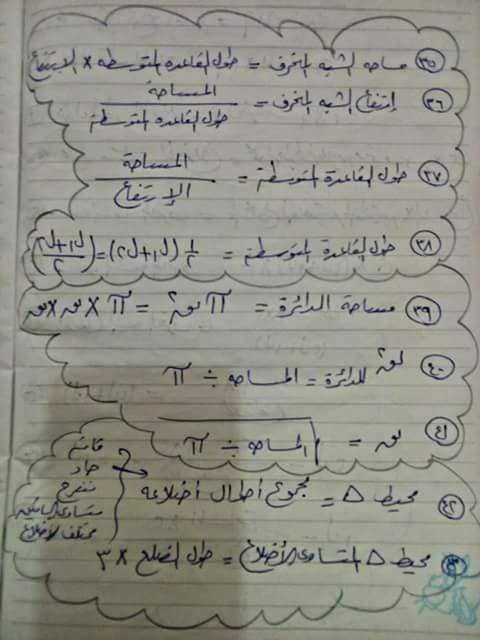 ٣٥ مساحه الشبه المنحرف = طول القاعده المتوسطه × الارتفاع
٣٦ إرتفاع الشبه المنحرف = المساحه / طول القاعده المتوسطه
٣٧ طول القاعدة المتوسطة = المساحة / الإرتفاع
٣٨ طول القاعدة المتوسطة = ١/٢ (ل١+ل٢) = (ل١+ل٢ / ٢)
٣٩ مساحة الدائرة = π نق² = π × نق × نق
٤٠ نق² للدائرة = المساحه ÷ π
٤١ نق = √المساحه ÷ π
٤٢ محيط △ = مجموع أطوال أضلاعه
قائم
حاد
منفرج
متساوى الساقين
مختلف الأضلاع
٤٣ محيط △ المتساوى الأضلاع = طول الضلع × ٣